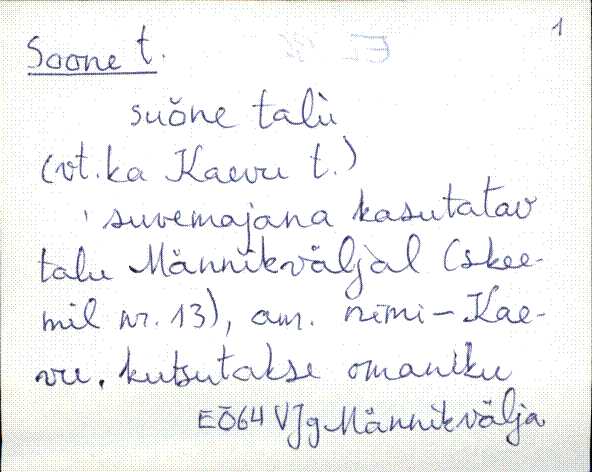 1
Soone t.
suõne talu̇̀
(vt. ka Kaevu t.)
suvemajana kasutatav
talu Männikväljal (skee-
mil nr. 13), am. nimi - Kae-
vu. kutsutakse omaniku
EÕ64 VJg Männikvälja